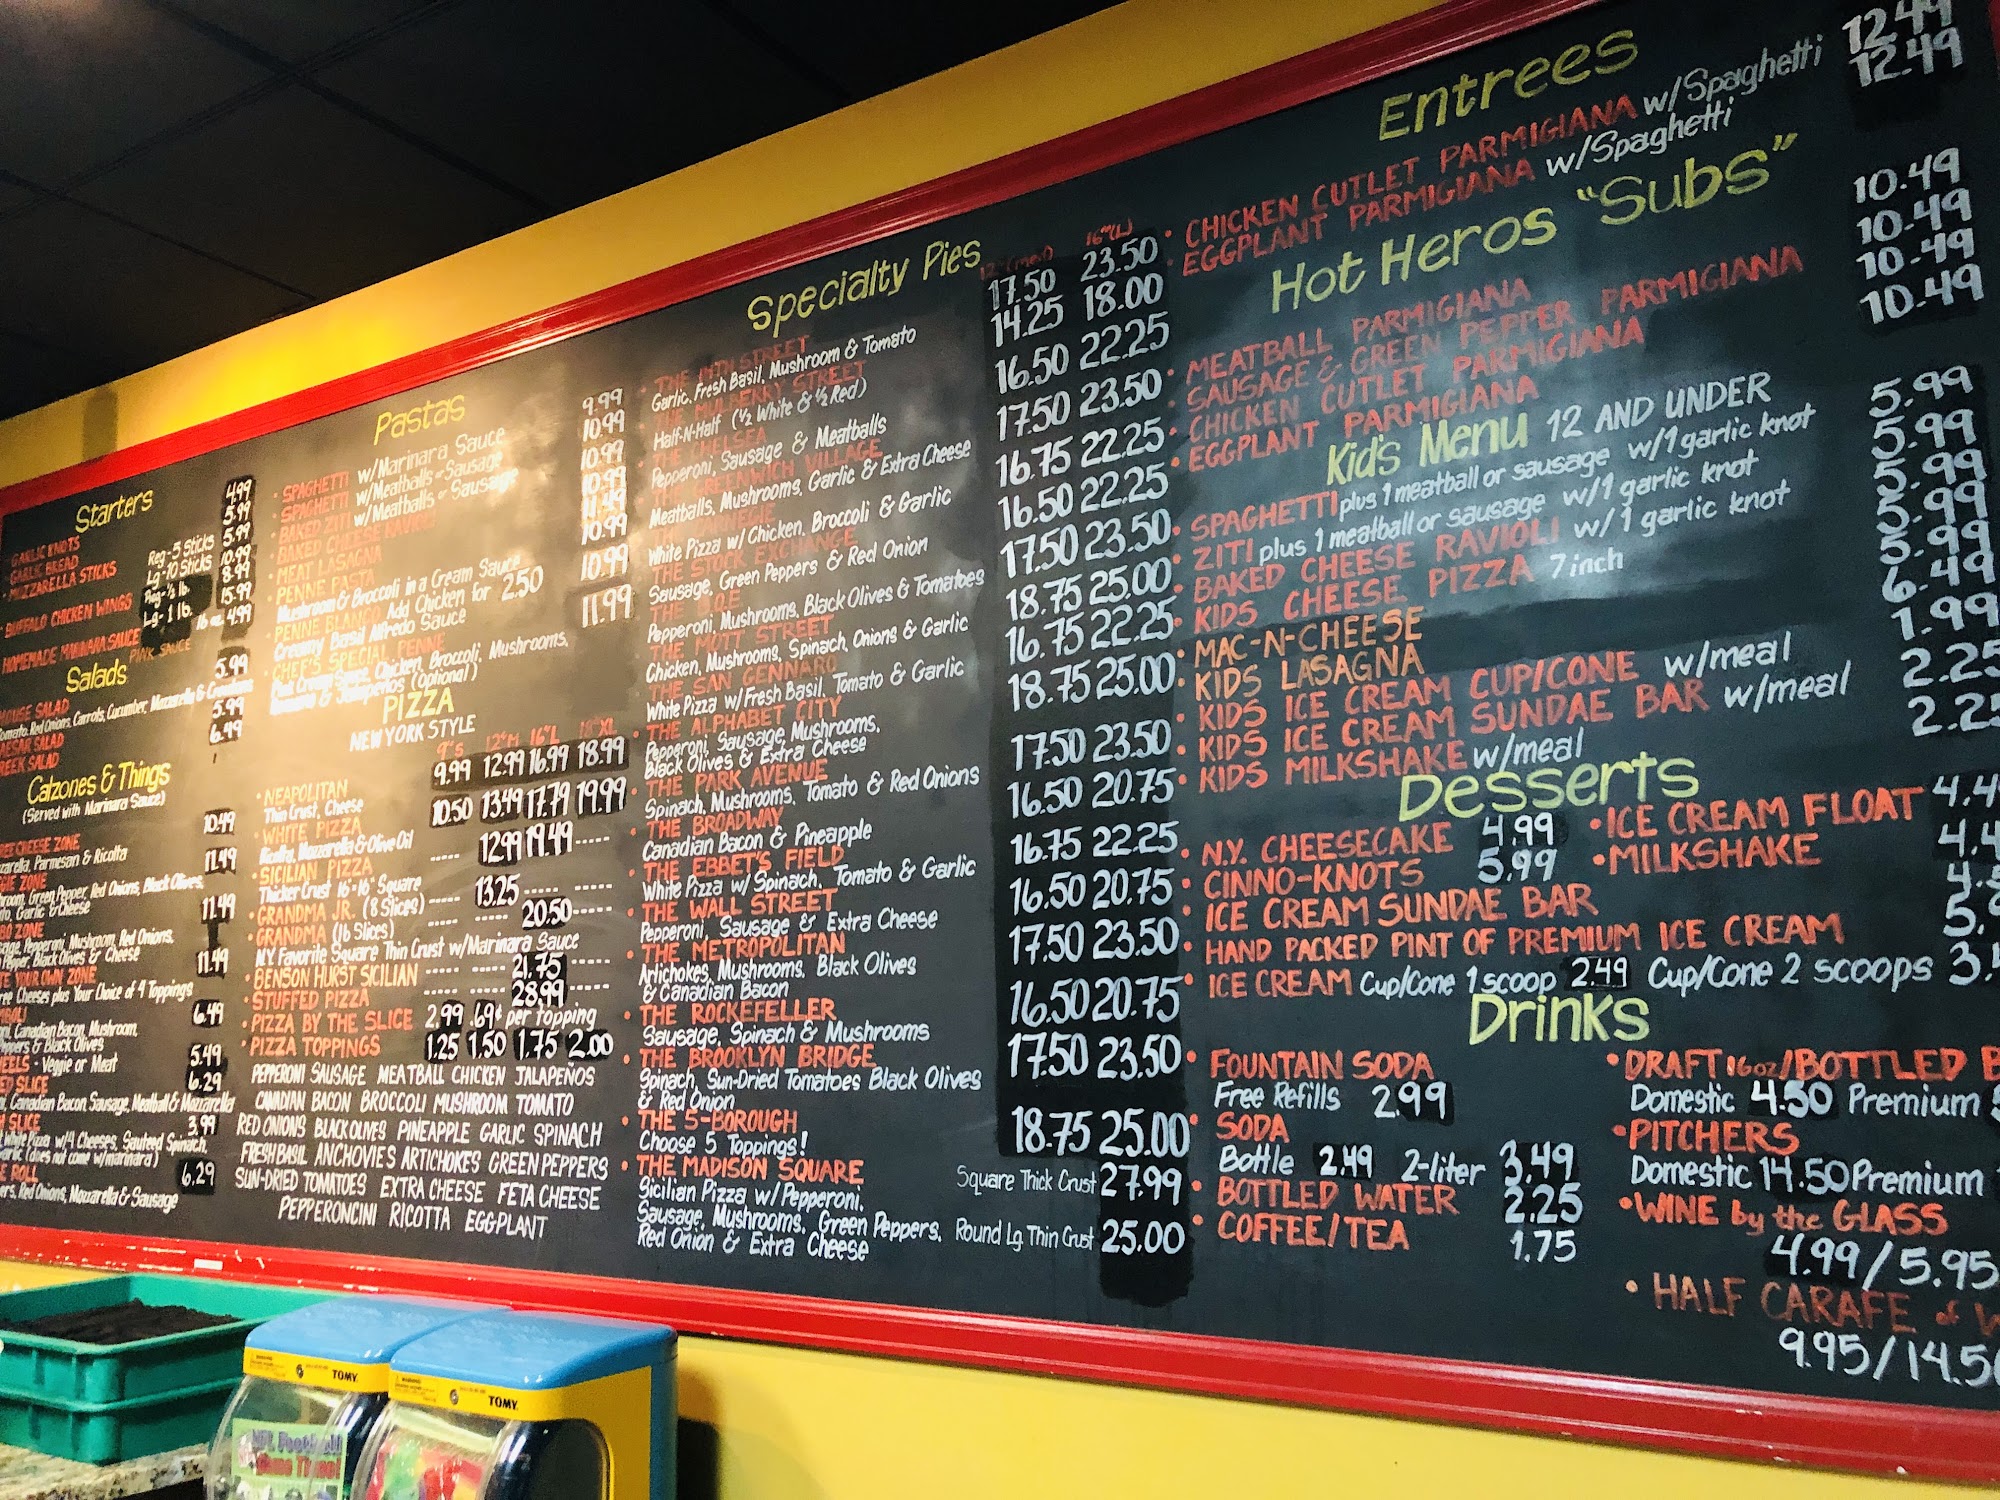 Starters
GARLIC KNOTS 4.99
GARLIC BREAD 5.99
MOZZARELLA STICKS Reg-5 Sticks 5.99
Lg-10 Sticks 10.99
BUFFALO CHICKEN WINGS Reg-½ lb. 8.99
Lg-1 lb. 15.99
HOMEMADE MARINARA SAUCE 16 oz. 4.99
PINK SAUCE
Salads
HOUSE SALAD 5.99
Tomato, Red Onions, Carrots, Cucumber, Mozzarella & Croutons
CAESAR SALAD 5.99
GREEK SALAD 6.49
Calzones & Things
(Served with Marinara Sauce)
CHEESE ZONE 10.49
Parmesan & Ricotta
ZONE 11.49
Green Pepper, Red Onions, Black Olives,
Garlic & Cheese
ZONE 11.49
Pepperoni, Mushroom, Red Onions,
Pepper, Black Olives & Cheese
YOUR OWN ZONE 11.49
Cheeses plus Your Choice of 4 Toppings
6.49
Canadian Bacon, Mushroom,
& Black Olives
- Veggie or Meat 5.49
SLICE 6.29
Canadian Bacon, Sausage, Meatball & Mozzarella
SLICE 3.99
White Pizza w/4 Cheeses, Sauteed Spinach,
(does not come w/marinara)
ROLL 6.29
Red Onions, Mozzarella & Sausage
Pastas
SPAGHETTI w/Marinara Sauce 9.99
SPAGHETTI w/Meatballs or Sausage 10.99
BAKED ZITI w/Meatballs or Sausage 10.99
BAKED CHEESE RAVIOLI 10.99
MEAT LASAGNA 11.49
PENNE PASTA 10.99
Mushroom & Broccoli in a Cream Sauce
PENNE BLANCO Add Chicken for 2.50 10.99
Creamy Basil Alfredo Sauce
CHEF'S SPECIAL PENNE 11.99
Pink Cream Sauce, Chicken, Broccoli, Mushrooms,
& Jalapeños (optional)
PIZZA
NEW YORK STYLE
9"S 12"M 16"L 18"XL
NEAPOLITAN 9.99 12.99 16.99 18.99
Thin Crust, Cheese
WHITE PIZZA 10.50 13.49 17.79 19.99
Ricotta, Mozzarella & Olive Oil
SICILIAN PIZZA ----- 12.99 19.49 -----
Thicker Crust 16"-16" Square
GRANDMA JR. (8 Slices) ----- 13.25 ----- -----
GRANDMA (16 Slices) ----- ----- 20.50 -----
N.Y. Favorite Square Thin Crust w/Marinara Sauce
BENSON HURST SICILIAN ----- ----- 21.75 -----
STUFFED PIZZA ----- ----- 28.99 -----
PIZZA BY THE SLICE 2.99 .69¢ per topping
PIZZA TOPPINGS 1.25 1.50 1.75 2.00
PEPPERONI SAUSAGE MEATBALL CHICKEN JALAPEÑOS
CANADIAN BACON BROCCOLI MUSHROOM TOMATO
RED ONIONS BLACK OLIVES PINEAPPLE GARLIC SPINACH
FRESH BASIL ANCHOVIES ARTICHOKES GREEN PEPPERS
SUN-DRIED TOMATOES EXTRA CHEESE FETA CHEESE
PEPPERONCINI RICOTTA EGGPLANT
Specialty Pies
16"(L)
STREET 17.50 23.50
Garlic, Fresh Basil, Mushroom & Tomato
THE MULBERRY STREET 14.25 18.00
Half-N-Half (½ White & ½ Red)
THE CHELSEA 16.50 22.25
Pepperoni, Sausage & Meatballs
THE GREENWICH VILLAGE 17.50 23.50
Meatballs, Mushrooms, Garlic & Extra Cheese
CARNEGIE 16.75 22.25
White Pizza w/ Chicken, Broccoli & Garlic
THE STOCK EXCHANGE 16.50 22.25
Sausage, Green Peppers & Red Onion
17.50 23.50
Pepperoni, Mushrooms, Black Olives & Tomatoes
THE MOTT STREET 18.75 25.00
Chicken, Mushrooms, Spinach, Onions & Garlic
THE SAN GENNARO 16.75 22.25
White Pizza w/Fresh Basil, Tomato & Garlic
THE ALPHABET CITY 18.75 25.00
Pepperoni, Sausage, Mushrooms,
Black Olives & Extra Cheese
THE PARK AVENUE 17.50 23.50
Spinach, Mushrooms, Tomato & Red Onions
THE BROADWAY 16.50 20.75
Canadian Bacon & Pineapple
THE EBBET'S FIELD 16.75 22.25
White Pizza w/ Spinach, Tomato & Garlic
THE WALL STREET 16.50 20.75
Pepperoni, Sausage & Extra Cheese
THE METROPOLITAN 17.50 23.50
Artichokes, Mushrooms, Black Olives
& Canadian Bacon
THE ROCKEFELLER 16.50 20.75
Sausage, Spinach & Mushrooms
THE BROOKLYN BRIDGE 17.50 23.50
Spinach, Sun-Dried Tomatoes Black Olives
& Red Onion
THE 5-BOROUGH 18.75 25.00
Choose 5 Toppings!
THE MADISON SQUARE Square Thick Crust 27.99
Sicilian Pizza w/ Pepperoni,
Sausage, Mushrooms, Green Peppers, Round Lg. Thin Crust 25.00
Red Onion & Extra Cheese
Entrees
CHICKEN CUTLET PARMIGIANA w/Spaghetti 12.49
EGGPLANT PARMIGIANA w/Spaghetti 12.49
Hot Heros "Subs"
MEATBALL PARMIGIANA 10.49
SAUSAGE & GREEN PEPPER PARMIGIANA 10.49
CHICKEN CUTLET PARMIGIANA 10.49
EGGPLANT PARMIGIANA 10.49
Kid's Menu 12 AND UNDER
SPAGHETTI plus 1 meatball or sausage w/1 garlic knot 5.99
ZITI plus 1 meatball or sausage w/1 garlic knot 5.99
BAKED CHEESE RAVIOLI w/1 garlic knot 5.99
KIDS CHEESE PIZZA 7 inch 5.99
MAC-N-CHEESE 5.99
KIDS LASAGNA 6.49
KIDS ICE CREAM CUP/CONE w/meal 1.99
KIDS ICE CREAM SUNDAE BAR w/meal 2.25
KIDS MILKSHAKE w/meal 2.25
Desserts
N.Y. CHEESECAKE 4.99 ICE CREAM FLOAT
CINNO-KNOTS 5.99 MILKSHAKE
ICE CREAM SUNDAE BAR
HAND PACKED PINT OF PREMIUM ICE CREAM
ICE CREAM Cup/Cone 1 scoop 2.49 Cup/Cone 2 scoops
Drinks
FOUNTAIN SODA
Free Refills 2.99
SODA
Bottle 2.49 2-liter 3.49
BOTTLED WATER 2.25
COFFEE/TEA 1.75
DRAFT 16oz/BOTTLED
Domestic 4.50 Premium
PITCHERS
Domestic 14.50 Premium
WINE by the GLASS
4.99/5.95
HALF CARAFE of
9.95/14.50
TOMY
TOMY